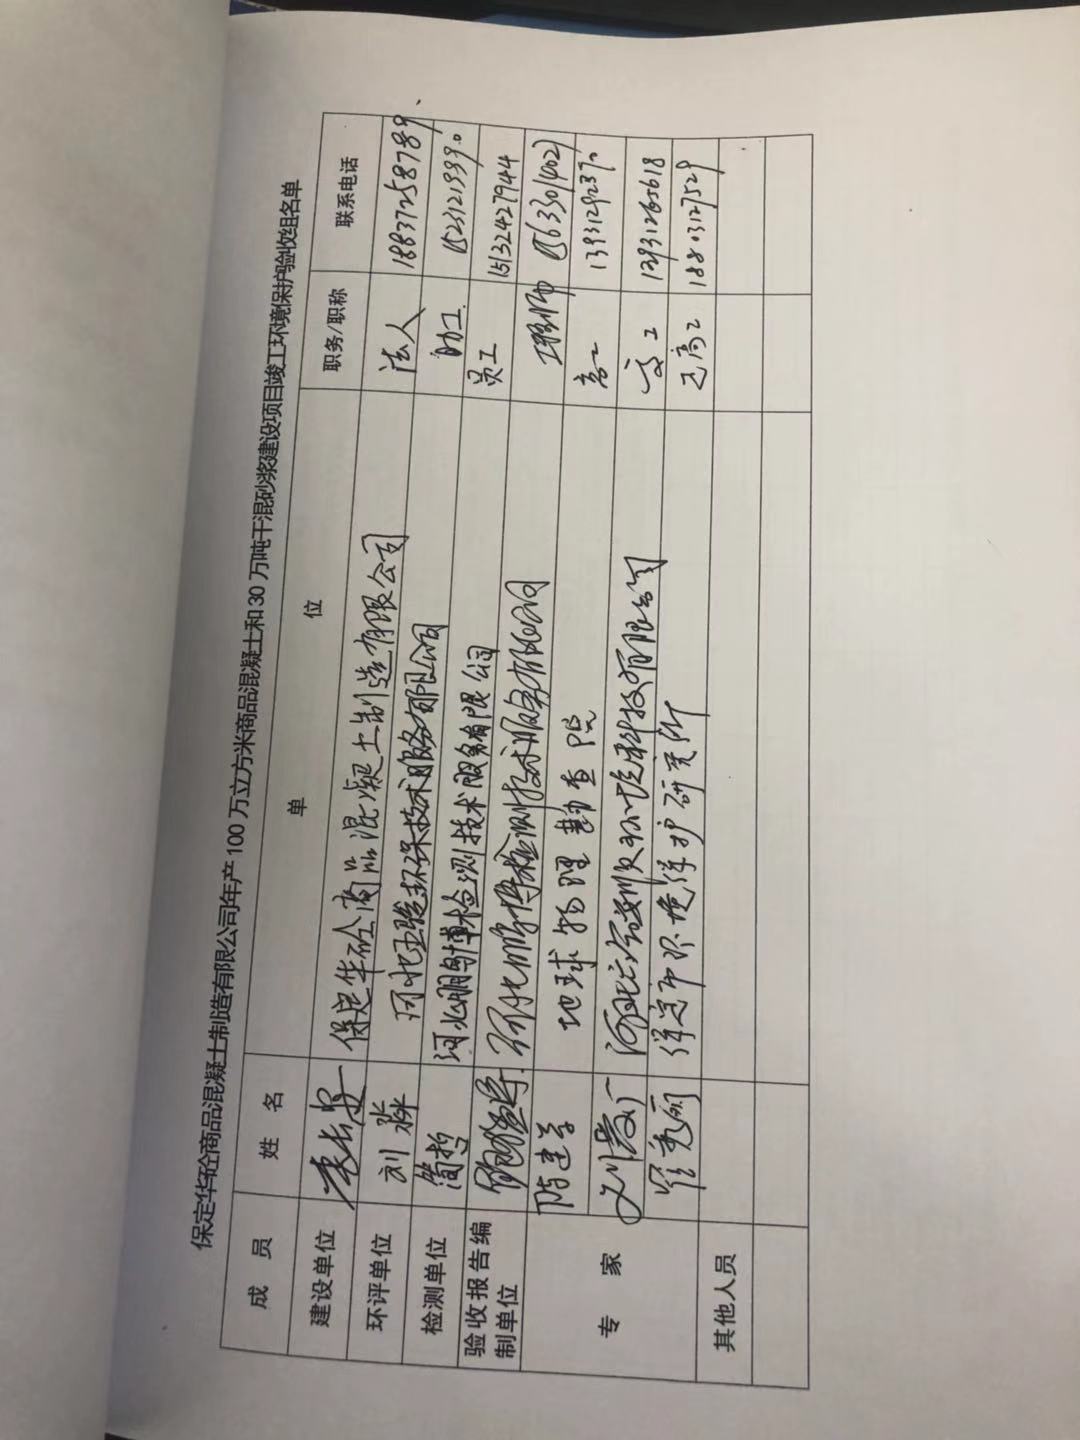 保定华砼商品混凝土制造有限公司年产100万立方米商品混凝土和30万吨干混砂浆建设项目竣工环境保护验收组名单
成 员 姓 名 单 位 职务/职称 联系电话
建设单位 李长安 保定华砼商品混凝土制造有限公司 法人 18837258789
环评单位 刘淼 河北 环保技术服务有限公司 助工
检测单位 简哲 河北鹏博检测技术服务有限公司 员工 15132427944
验收报告编
制单位 河北鹏博检测技术服务有限公司 工程师
专 家 陈建学 地球物理勘查院 高工 13931292370
有限公司 高工
保定市环境保护研究所 正高工 18803127529
其他人员